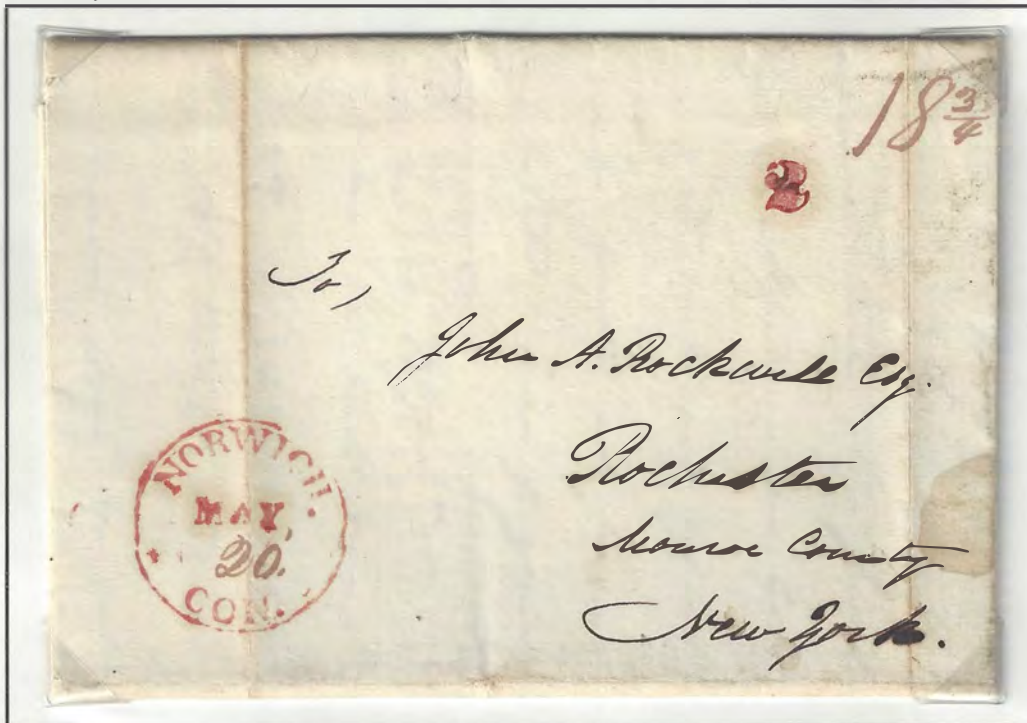 18 3/4
2
To,
John A. Rockwell Esq.
Rochester
Monroe County
New York.
NORWICH.
MAY,
20.
CON.